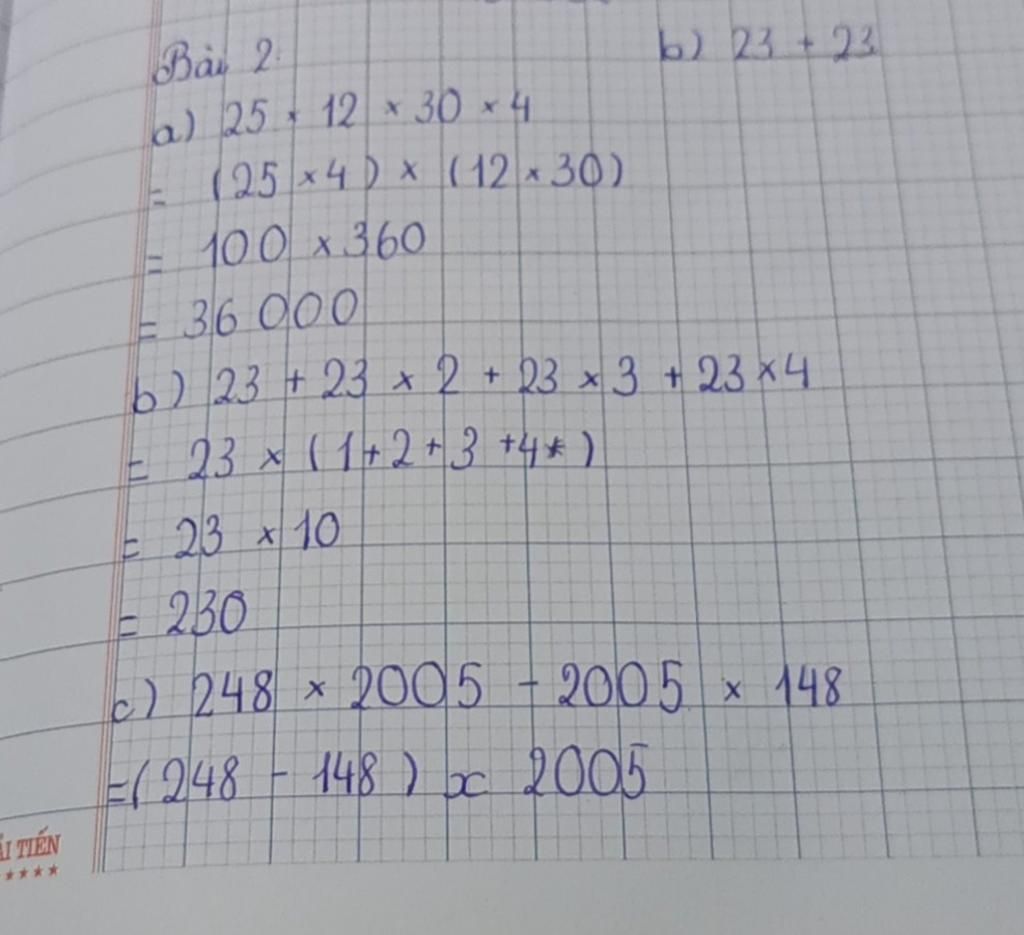 Bài 2
b) 23 + 23
a) 25 × 12 × 30 × 4
= (25 × 4) × (12 × 30)
= 100 × 360
= 36 000
b) 23 + 23 × 2 + 23 × 3 + 23 × 4
= 23 × (1+2+3+4)
= 23 × 10
= 230
c) 248 × 2005 - 2005 × 148
=(248 - 148) x 2005
ẢI TIẾN